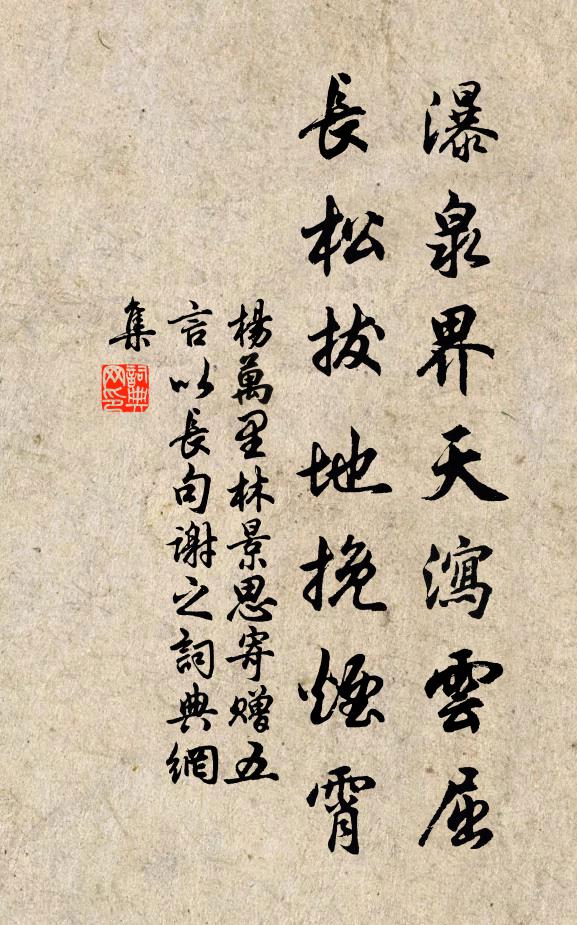 瀑泉界天瀉雲屈
長松拔地挽煙霄
楊萬里林景思寄贈五
言以長句謝之詞典網
集
詞典
网印